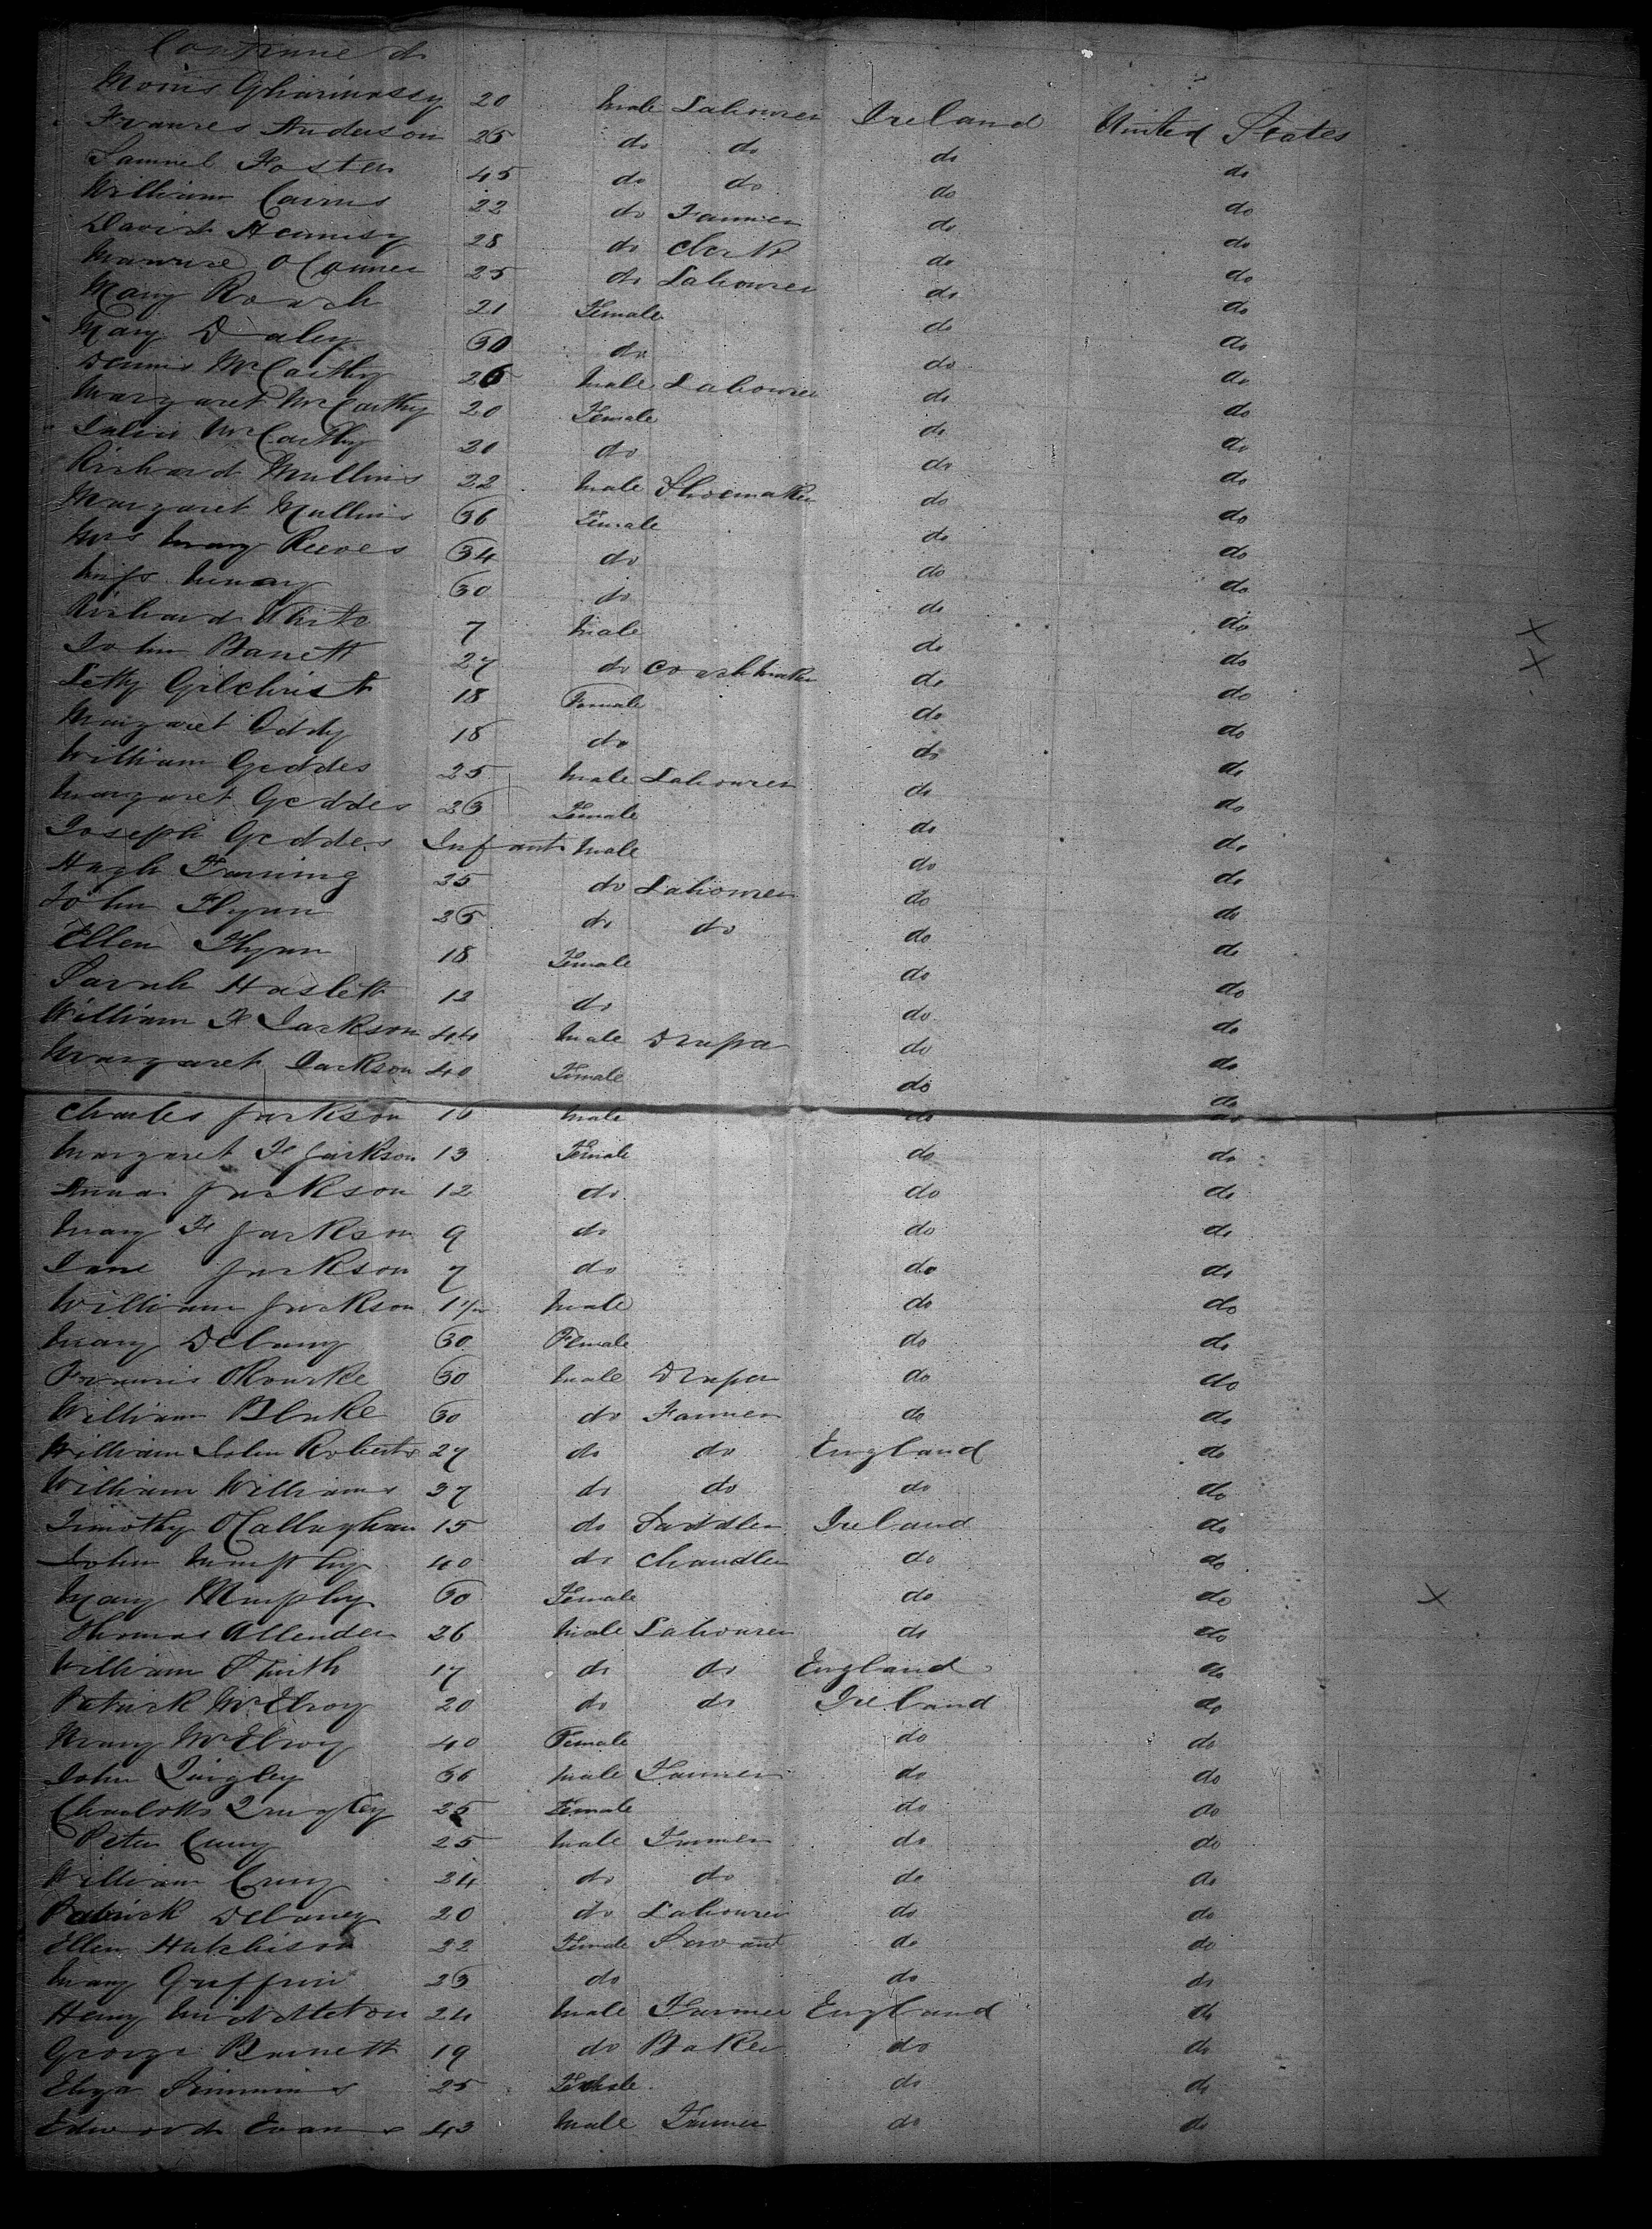 Continued
Morris 20 Male Labourer Ireland United States
Frances Anderson 25 do do do do
Samuel Foster 45 do do do do
William Cairns 22 do Farmer do do
David Hennesy 28 do Clerk do do
Maurice O Conner 25 do Labourer do do
Mary Roach 21 Female do do
Mary Daley 30 do do do
Dennis McCarthy 26 Male Labourer do do
Margaret McCarthy 20 Female do do
McCarthy 20 do do do
Richard Mullins 22 Male Shoemaker do do
Margaret Mullins 36 Female do do
Mrs Mary Reeves 34 do do do
Miss 30 do do do
Richard White 7 Male do do
John Barrett 27 do Coachmaker do do
Letty Gilchrist 18 Female do do
Margaret Oddy 18 do do do
William Geddes 25 Male Labourer do do
Margaret Geddes 23 Female do do
Joseph Geddes Infant Male do do
Hugh 35 do Labourer do do
John Flynn 25 do do do do
Ellen Flynn 18 Female do do
Sarah Haslett 12 do do do
William F Jackson 44 Male Draper do do
Margaret Jackson 40 Female do do
Charles Jackson 16 Male do do
Margaret F Jackson 13 Female do do
Anna Jackson 12 do do do
Mary F Jackson 9 do do do
Jane Jackson 7 do do do
William Jackson Male do do
Mary Delany 30 Female do do
Francis ORourke 30 Male Draper do do
William Blake 30 do Farmer do do
William John Roberts 27 do do England do
William Williams 37 do do do do
Timothy OCallaghan 15 do Saddler Ireland do
John Murphy 40 do Chandler do do
Mary Murphy 30 Female do do X
Thomas Allender 26 Male Labourer do do
William Smith 17 do do England do
Patrick McElroy 20 do do Ireland do
Mary McElroy 40 Female do do
John Quigley 36 Male Farmer do do
Charlotte Quigley 25 Female do do
Peter 25 Male Farmer do do
William 24 do do do do
Patrick Delaney 20 do Labourer do do
Ellen Hutchison 22 Female Servant do do
Mary Griffin 23 do do do
Henry 24 Male Farmer England do
George Burnett 19 do Baker do do
Eliza Simmins 25 Female do do
Edwards Evans 43 Male Farmer do do